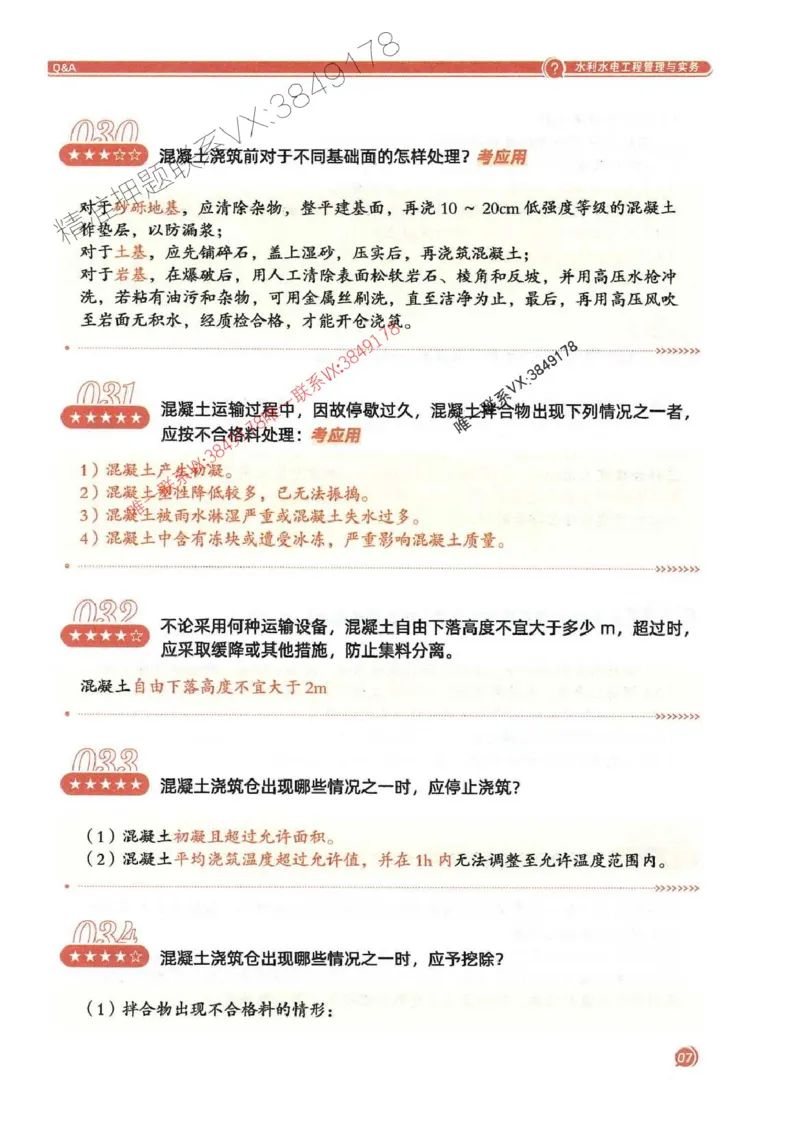 Q&A
水利水电工程管理与实务
030
混凝土浇筑前对于不同基础面的怎样处理？考应用
对于砂砾地基，应清除杂物，整平建基面，再浇 10 ～ 20cm 低强度等级的混凝土
作垫层，以防漏浆；
对于土基，应先铺碎石，盖上湿砂，压实后，再浇筑混凝土；
对于岩基，在爆破后，用人工清除表面松软岩石、棱角和反坡，并用高压水枪冲
洗，若粘有油污和杂物，可用金属丝刷洗，直至洁净为止，最后，再用高压风吹
至岩面无积水，经质检合格，才能开仓浇筑。
031
混凝土运输过程中，因故停歇过久，混凝土拌合物出现下列情况之一者，
应按不合格料处理：考应用
1）混凝土产生初凝。
2）混凝土塑性降低较多，已无法振捣。
3）混凝土被雨水淋湿严重或混凝土失水过多。
4）混凝土中含有冻块或遭受冰冻，严重影响混凝土质量。
032
不论采用何种运输设备，混凝土自由下落高度不宜大于多少 m，超过时，
应采取缓降或其他措施，防止集料分离。
混凝土自由下落高度不宜大于 2m
033
混凝土浇筑仓出现哪些情况之一时，应停止浇筑？
（1）混凝土初凝且超过允许面积。
（2）混凝土平均浇筑温度超过允许值，并在 1h 内无法调整至允许温度范围内。
034
混凝土浇筑仓出现哪些情况之一时，应予挖除？
（1）拌合物出现不合格料的情形：
07
精准押题联系VX:3849178
唯一联系VX:3849178
唯一联系VX:3849178唯一联系VX:3849178